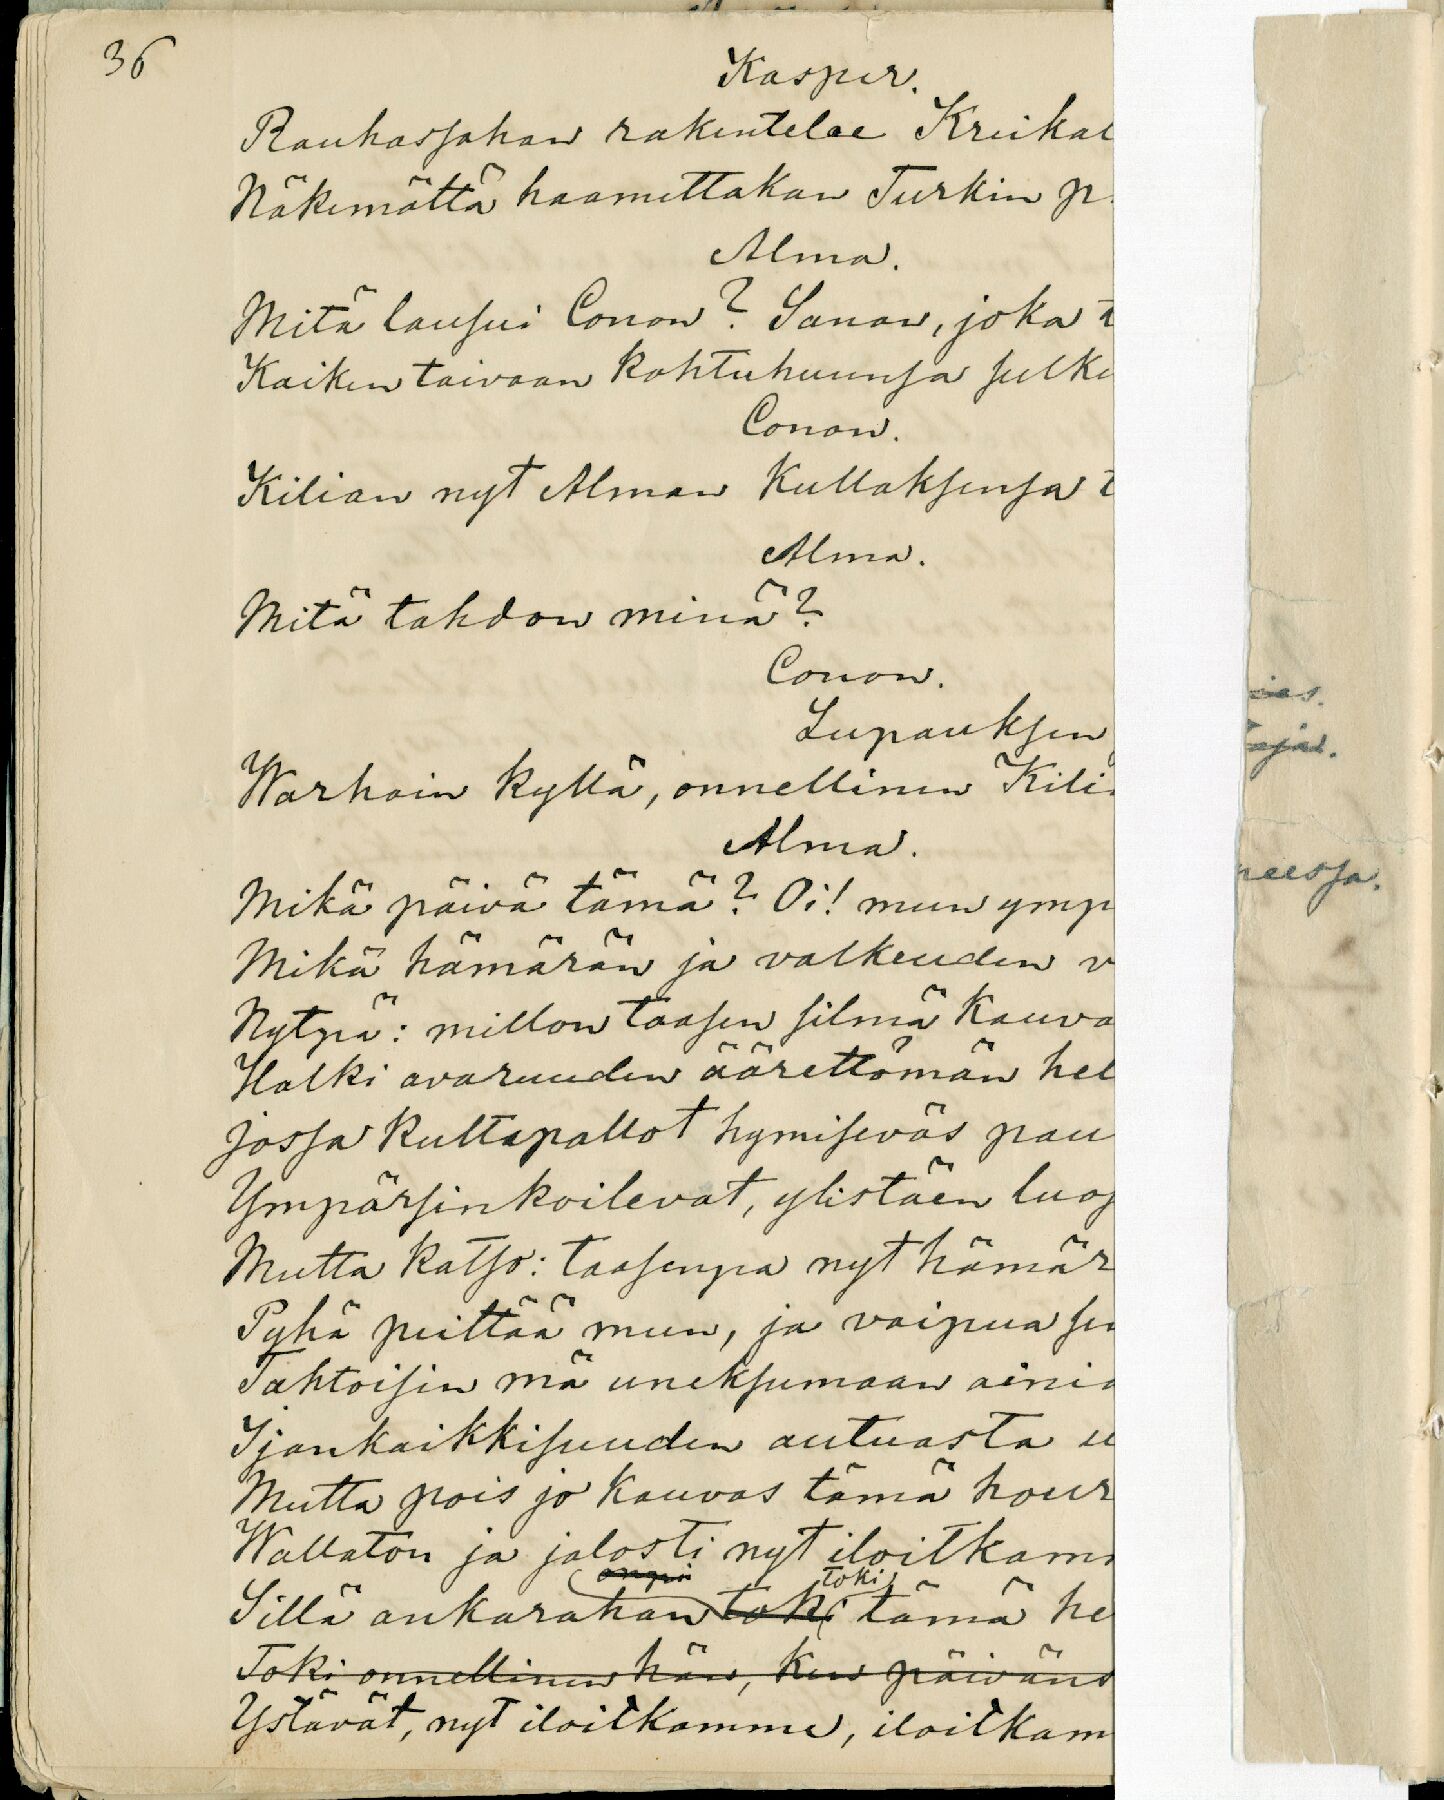 36
Kasper.
Rauhassahan rakentelee Kreikal
Näkemättä haamettakan Turkin p
Alma.
Mitä lausui Conon? Sanan, joka t
Kaiken taivaan kohtuhuunsa sulke
Conon.
Kilian nyt Alman kullaksensa t
Alma.
Mitä tahdon minä?
Conon.
Lupauksen
Warhain kyllä, onnellinen Kili
Alma.
Mikä päivä tämä? Oi! mun ymp
Mikä hämärän ja valkeuden v
Nytpä: millon taasen silmä kauva
Halki avaruuden äärettömän hel
jossa kultapallot hymiseväs pau
Ympärsinkoilevat, ylistäen luoj
Mutta katso: taasenpa nyt hämär
Pyhä peittää mun, ja vaipua se
Tahtoisin mä uneksumaan aini
Ijankaikkisuuden autuasta u
Mutta pois jo kauvas tämä hour
Wallaton ja jalosti nyt iloitkam
ompi toki
Sillä ankarahan toki tämä he
Toki onnellinen hän, kun päiväns
Ystävät, nyt iloitkamme, iloitkam
ies.
eessa.